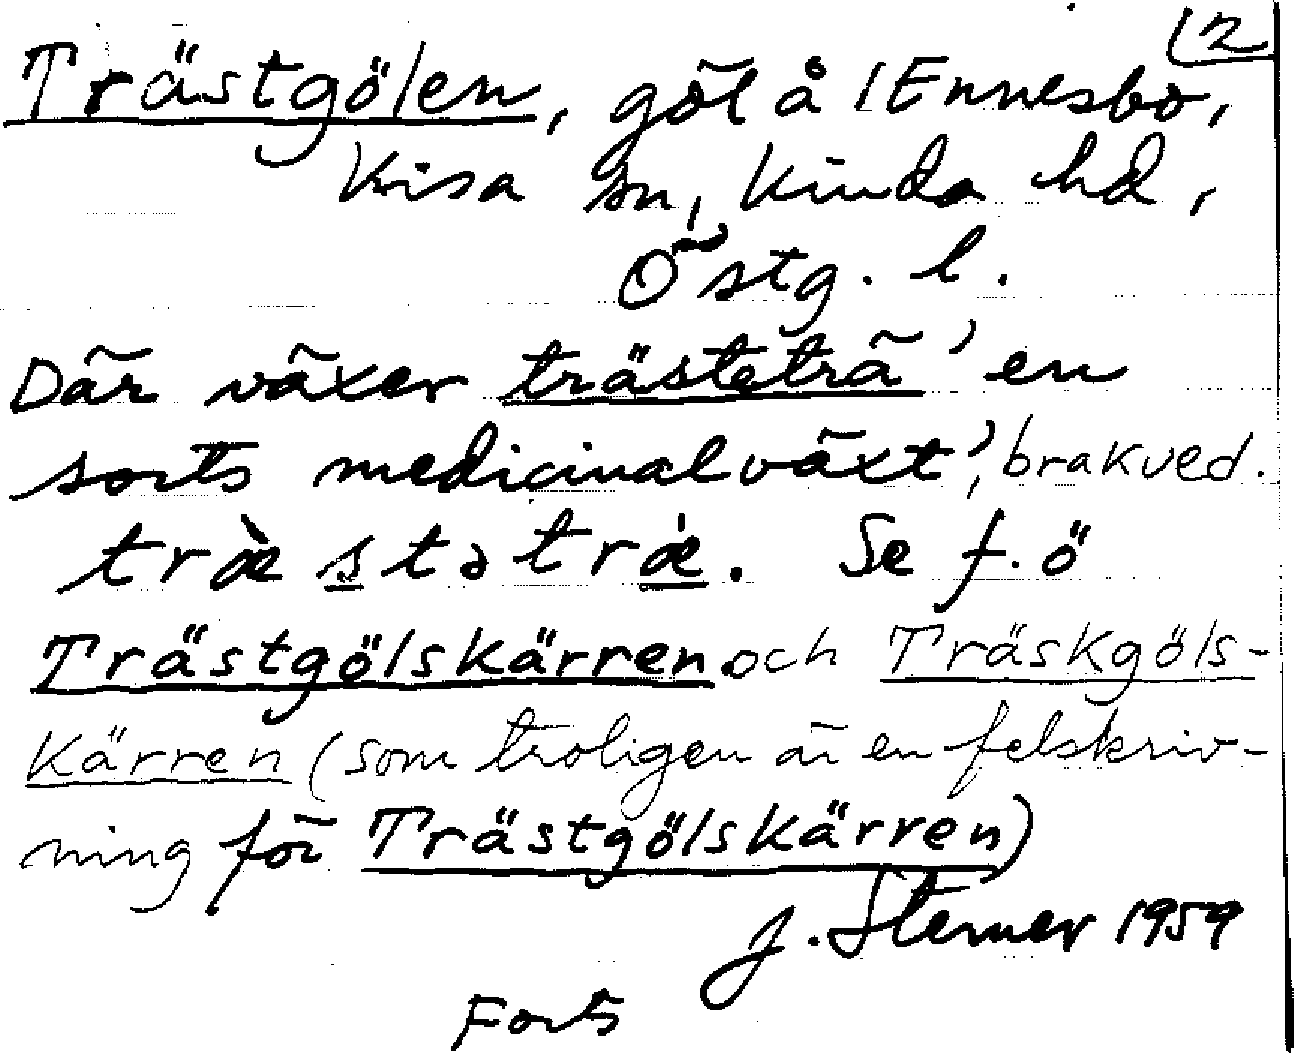 12
Trästgölen, göl å 1 Ennesbo,
Kisa sn, Kinda hd,
Östg. l.
Där växer trästeträ 'en
sorts medicinalväxt', brakved.
træ̀stətrǽ. Se f. ö
Trästgölskärren och Träskgöls-
kärren (som troligen är en felskriv-
ning för Trästgölskärren)
J. Sterner 1959
Forts